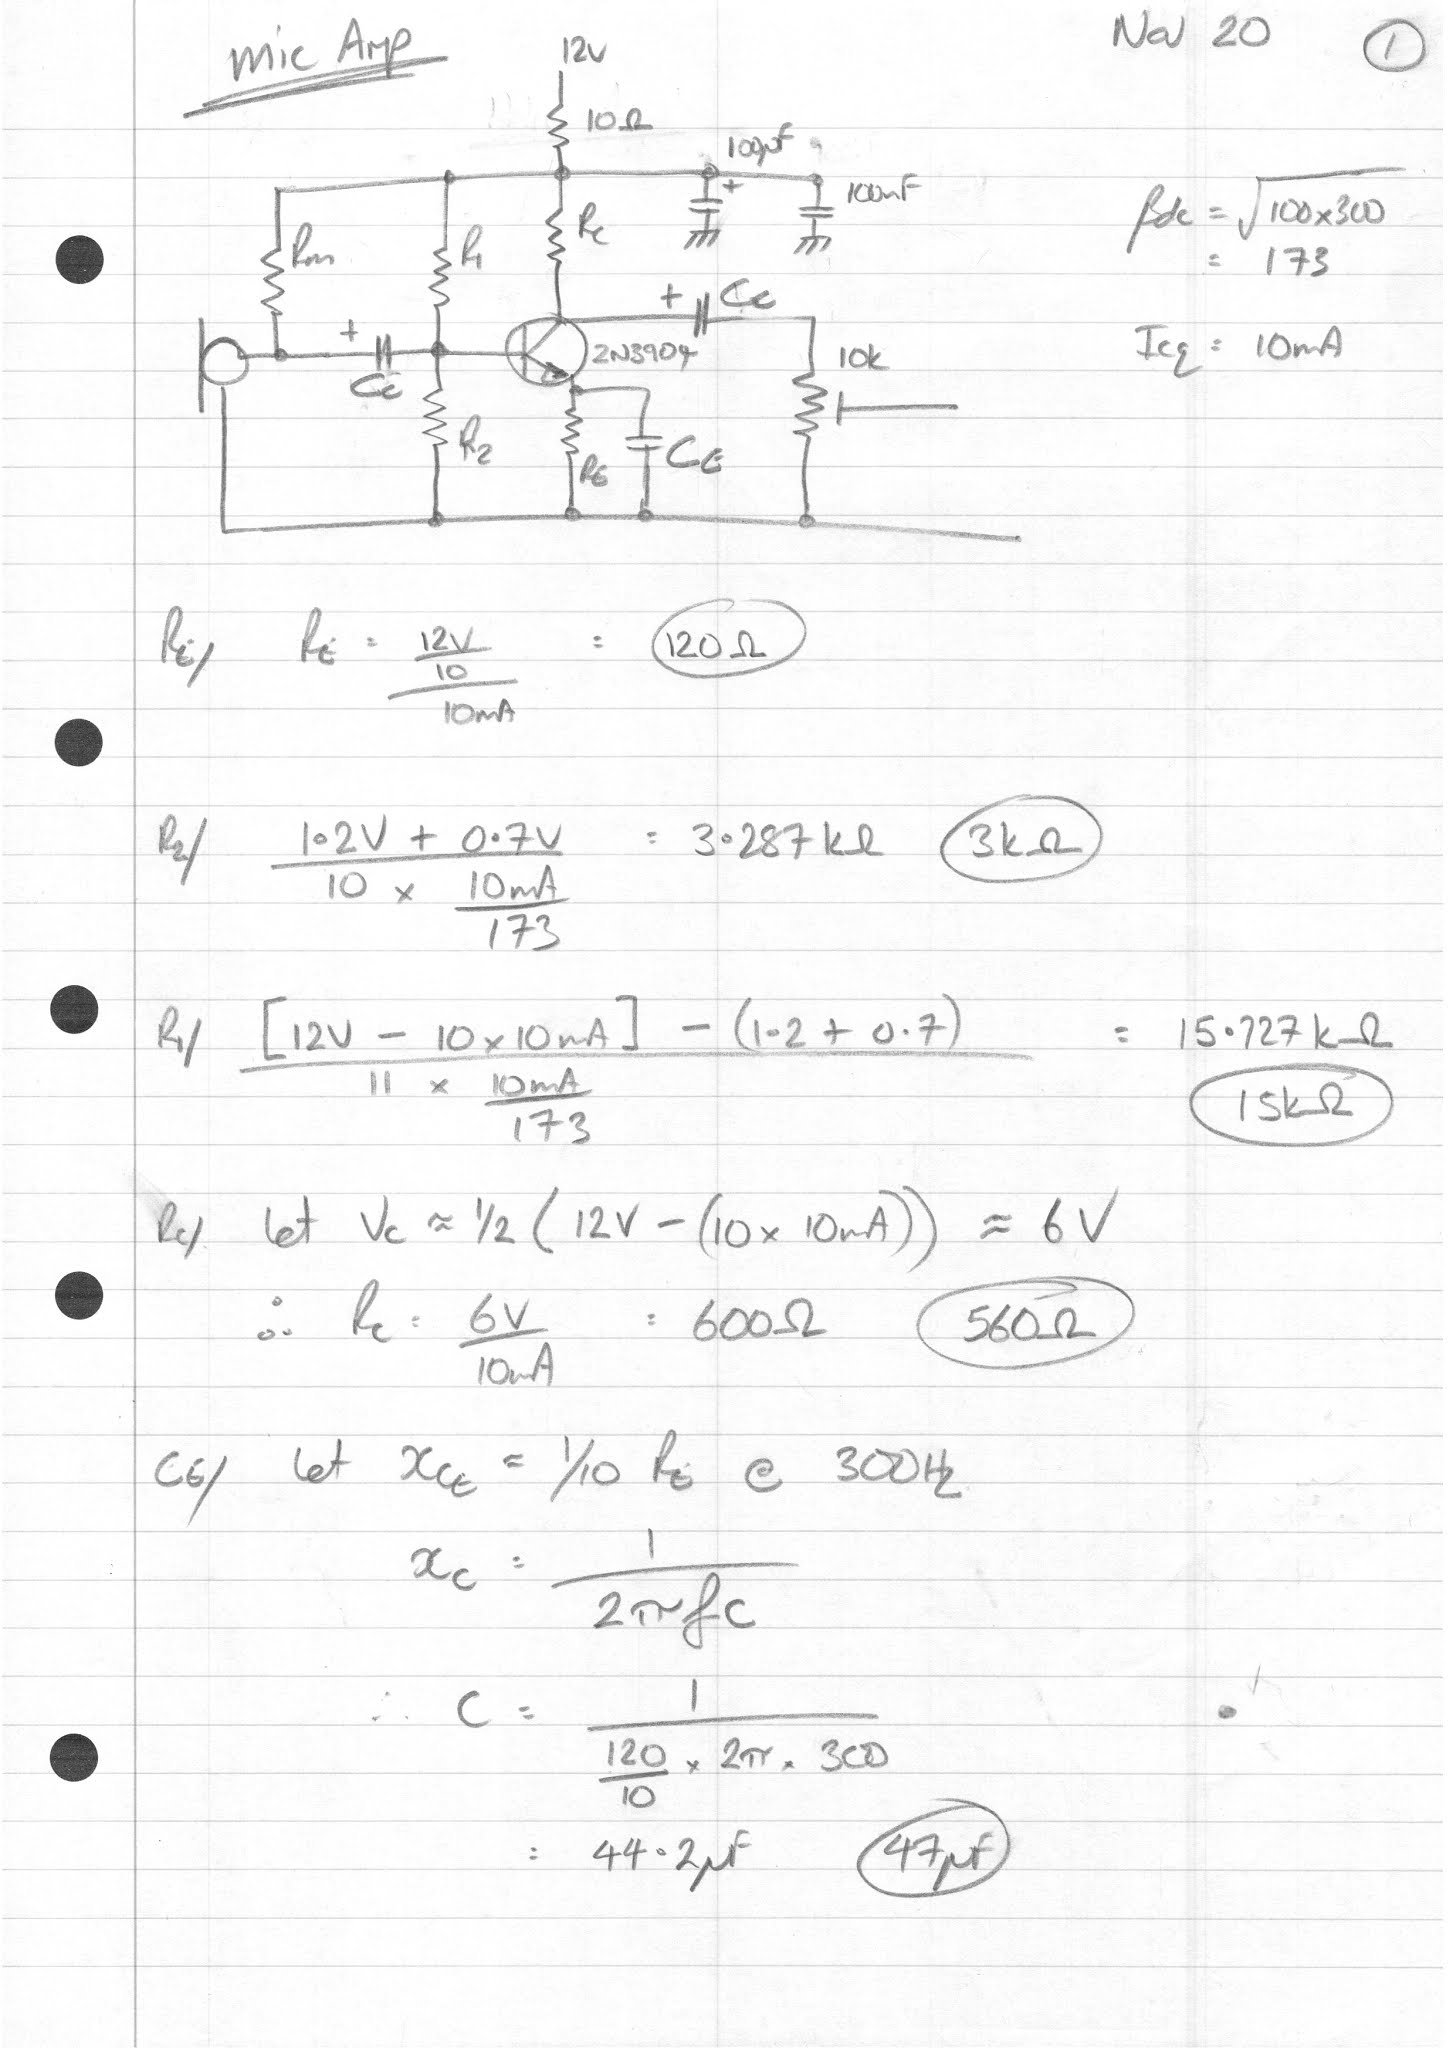 Mic Amp
Nov 20
1
12V
10Ω
100µF
+
100nF
Rm
R1
Rc
βdc = √100x300
= 173
+
Cc
+
Cc
2N3904
10k
Icq = 10mA
R2
RE
CE
RE/ RE = 12V/10 / 10mA = 120Ω
R2/ 1.2V + 0.7V / 10 x 10mA/173 = 3.287kΩ 3kΩ
R1/ [12V - 10x10mA] - (1.2 + 0.7) / 11 x 10mA/173 = 15.727kΩ
15kΩ
Rc/ let Vc ≈ 1/2 (12V - (10x 10mA)) ≈ 6V
∴ Rc = 6V/10mA = 600Ω 560Ω
CE/ let xCE = 1/10 RE @ 300Hz
xC = 1 / 2πfC
∴ C = 1 / 120/10 x 2π x 300
= 44.2µF 47µF